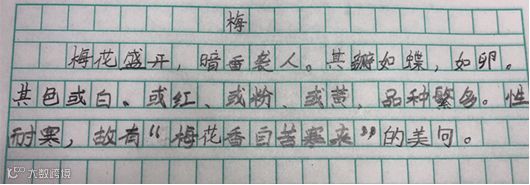 梅
梅花盛开，暗香袭人。其瓣如蝶，如卵。
其色或白、或红、或粉、或黄，品种繁多。性
耐寒，故有“梅花香自苦寒来”的美句。
大数跨境